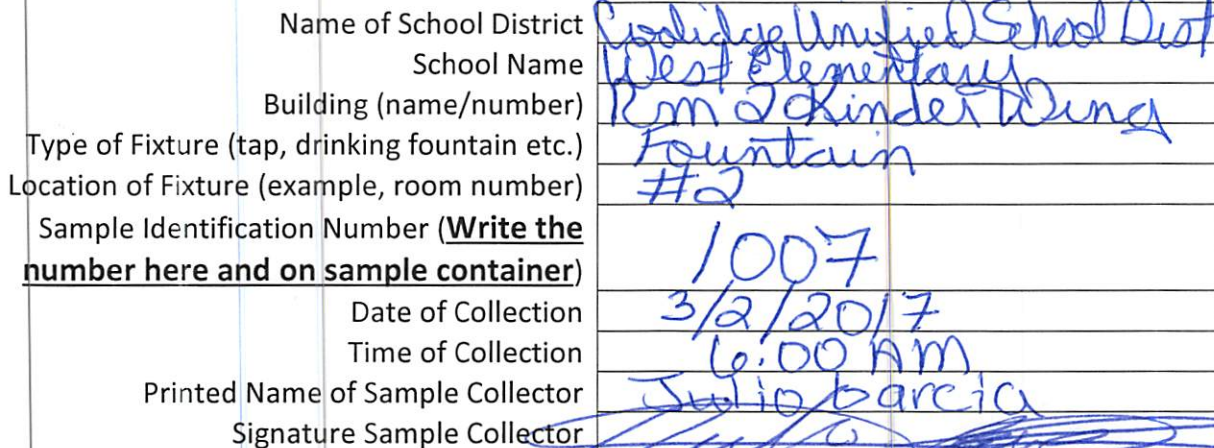 Name of School District Coolidge Unified School Dist
School Name West Elementary
Building (name/number) Rm 2 Kinder Wing
Type of Fixture (tap, drinking fountain etc.) Fountain
Location of Fixture (example, room number) #2
Sample Identification Number (Write the
number here and on sample container) 1007
Date of Collection 3/2/2017
Time of Collection 6:00 AM
Printed Name of Sample Collector Julio Garcia
Signature Sample Collector